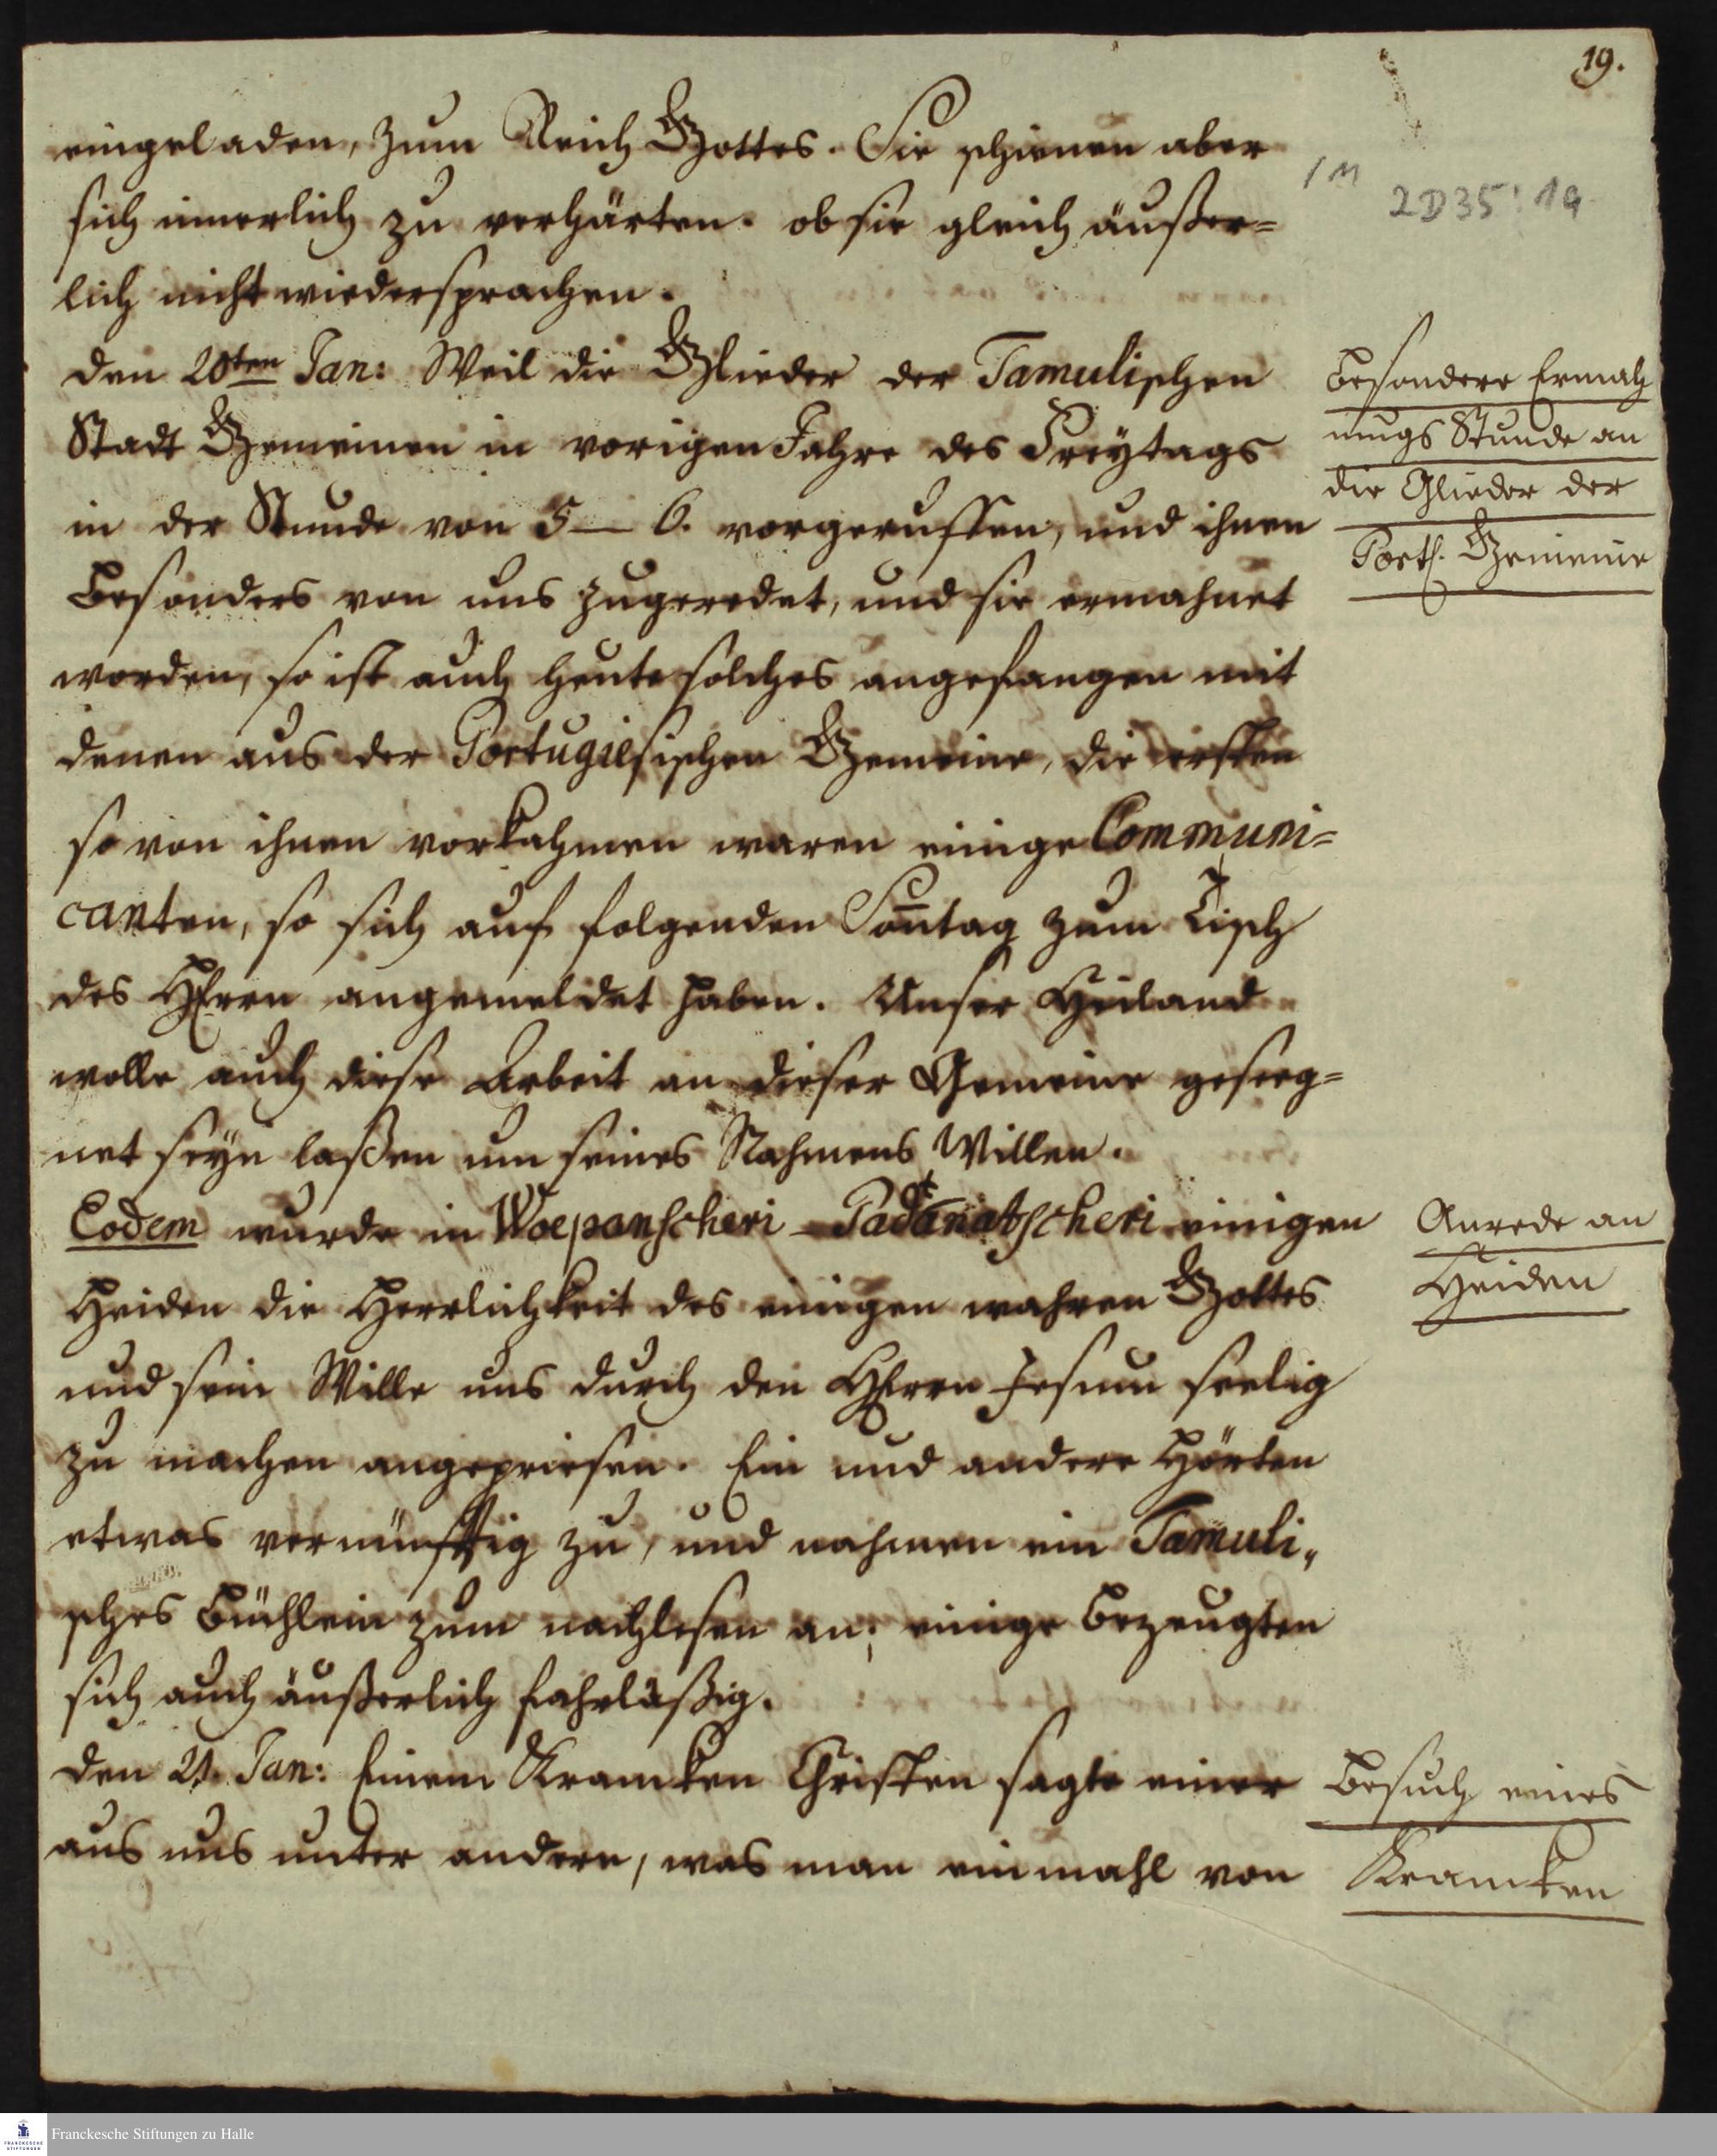 19.
1 M 2D35:19
eingeladen, zum Reich Gottes. Sie schienen aber
sich innerlich zu verhärten. ob sie gleich äußer=
lich nicht wiedersprachen.
den 20ten Jan: Weil die Glieder der Tamulischen
Stadt Gemeinen in vorigen Jahre des Freytags
in der Stunde von 5 — 6. vorgeruffen, und ihnen
besonders von uns zugeredet, und sie ermahnet
worden, so ist auch heute solches angefangen mit
denen aus der Portugiesischen Gemeine, die ersten
so von ihnen vorkahmen waren einige Communi=
canten, so sich auf folgenden Son̄tag zum Tisch
des HErrn angemeldet haben. Unser Heiland
wolle auch diese Arbeit an dieser Gemeine geseeg=
net seyn laßen um seines Nahmens Willen.
Eodem wurde in Woepanscheri - einigen
Heiden die Herrlichkeit des einigen wahren Gottes
und sein Wille uns durch den HErrn Jesum seelig
zu machen angepriesen. Ein und andere hörten
etwas vernünfftig zu, und nahmen ein Tamuli„
sches Büchlein zum nachlesen an; einige bezeugten
sich auch äußerlich fahrläßig.
den 21. Jan: Einem Krancken Christen sagte einer
aus uns unter andern, was man einmahl von
Besondere Ermah
nungs Stunde an
die Glieder der
Port. Gemeine
Anrede an
Heiden
Besuch eines
Krancken
Franckesche Stiftungen zu Halle